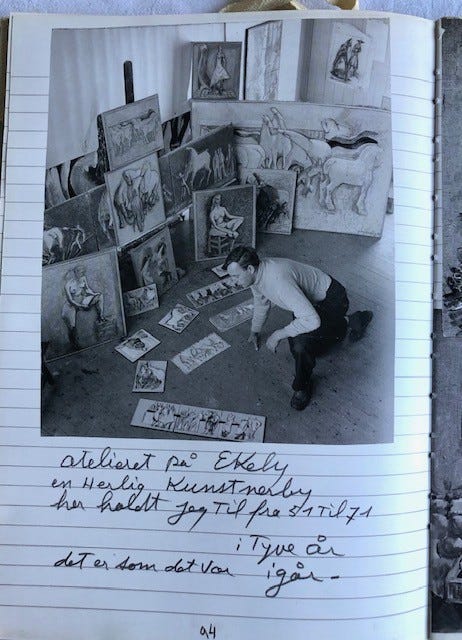 atelieret på Ekely
en Herlig Kunstnerby
her holdt jeg Til fra 51 Til 71
i Tyve år
det er som det var igår -
94